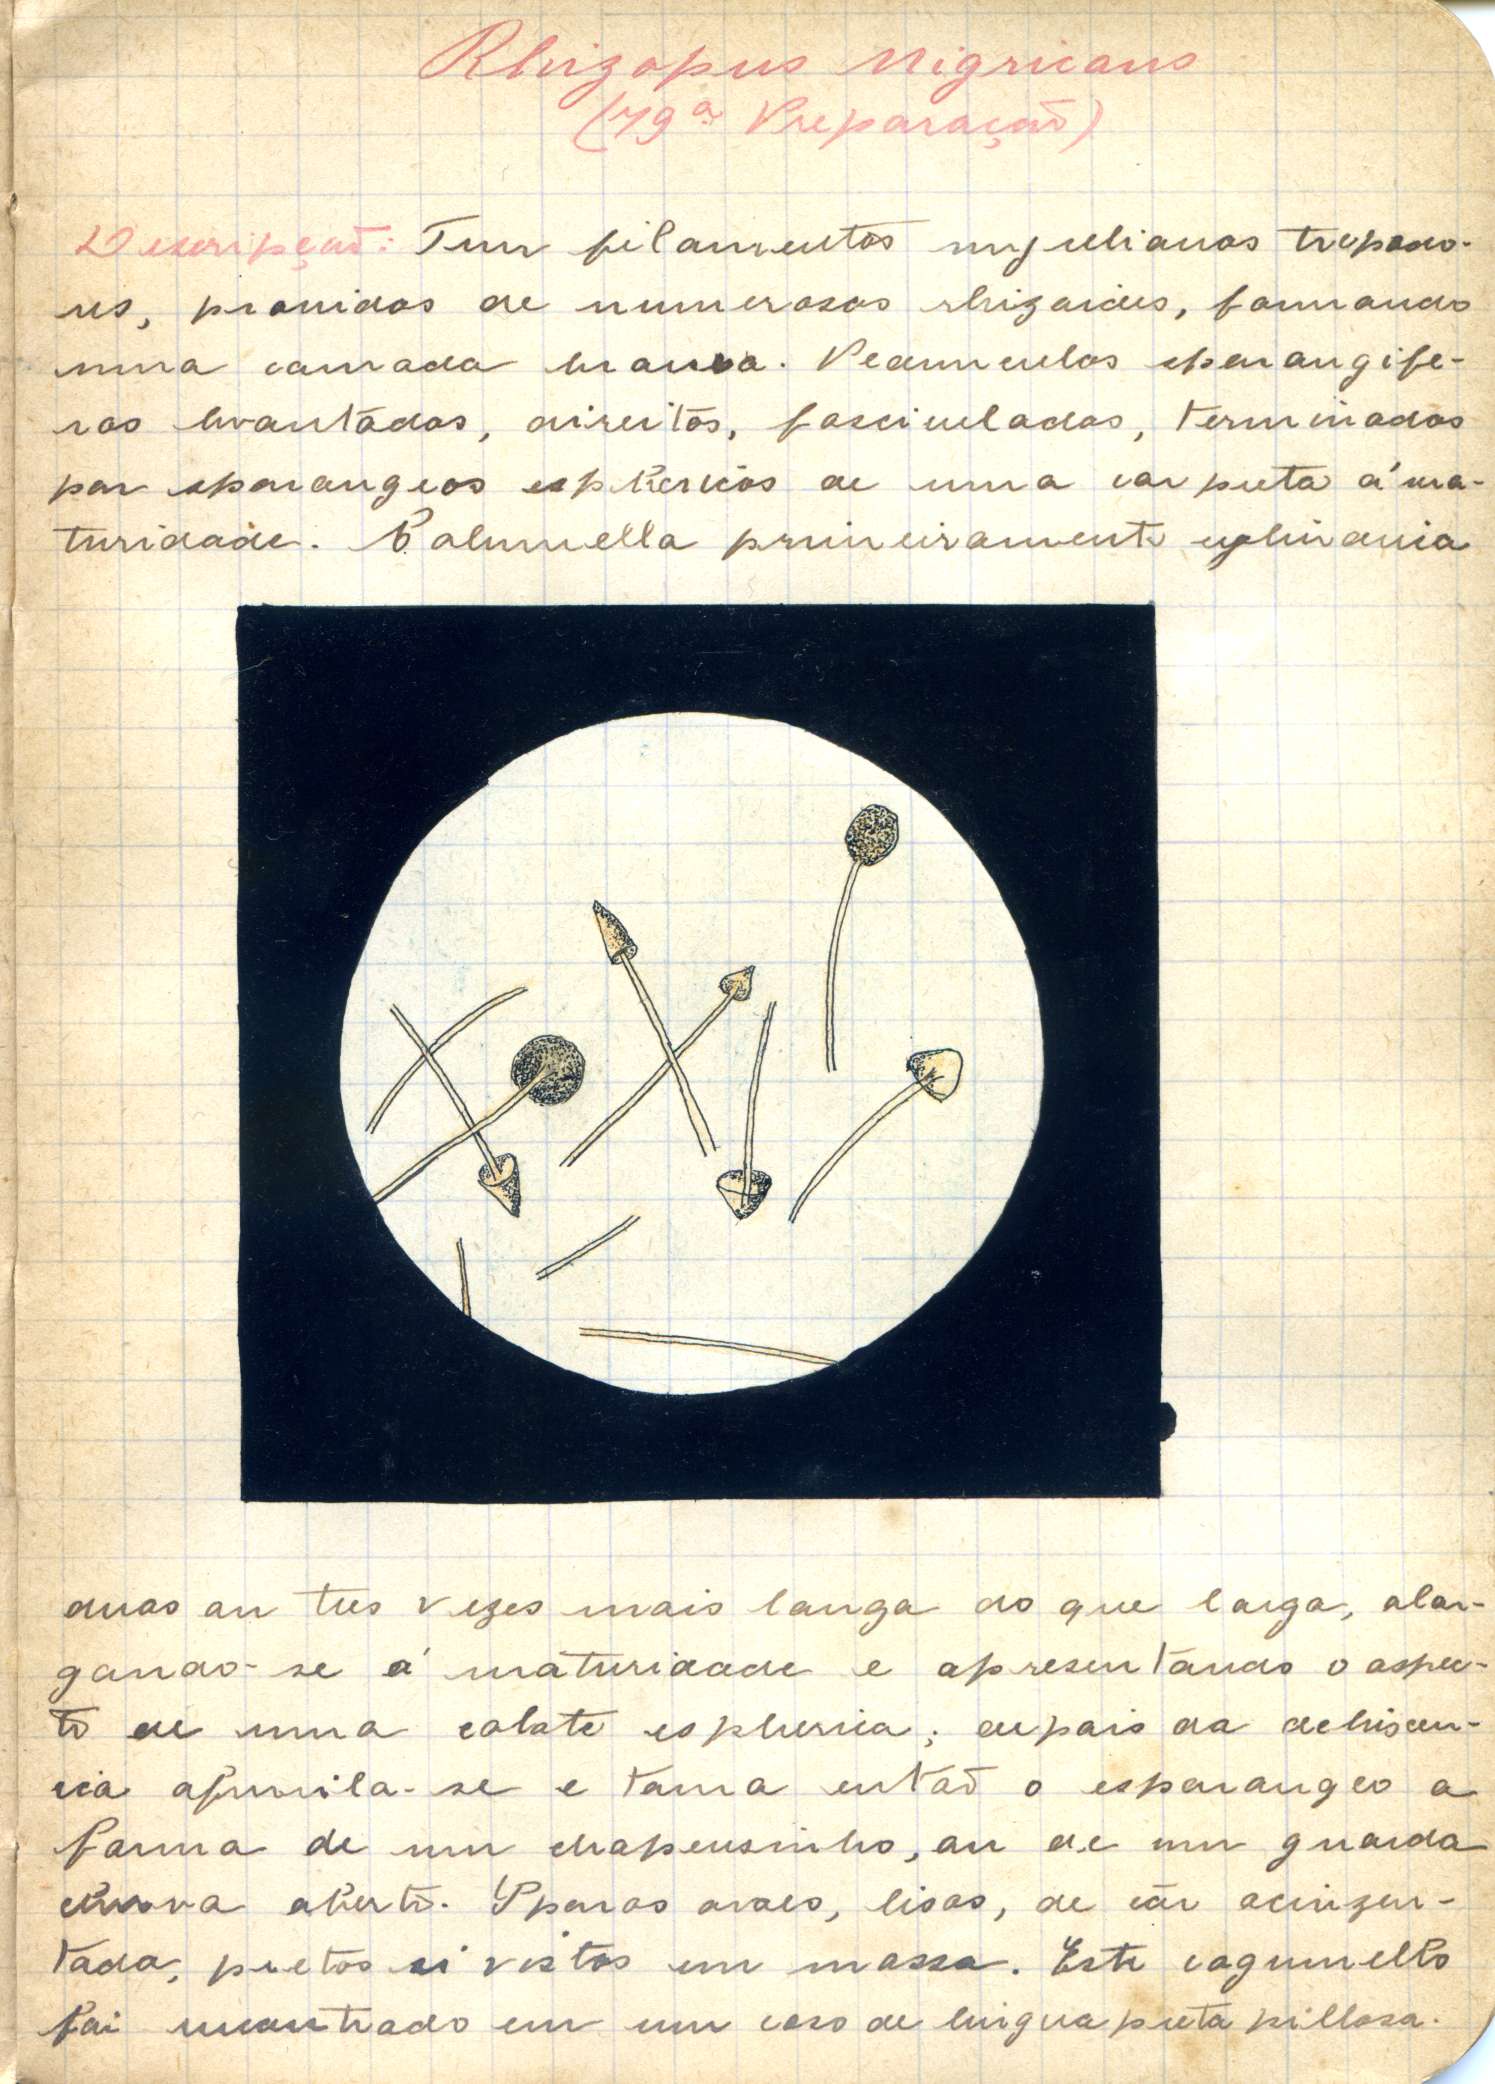 Rhizopus Nigricans
(79ª Preparação)
Descripção: Tem filamentos mycelianos trepado-
res, providos de numerosos rhizoides, formando
uma camada branca. Pedunculos sporangife-
ros levantados, direitos, fasciculados, terminados
por sporangeos esphericos de uma cor preta á ma-
turidade. Columella primeiramente cylindrica
duas ou tres vezes mais longa do que larga, alar-
gando-se á maturidade e apresentando o aspec-
to de uma calote espherica; depois da dehiscen-
cia afunila-se e toma então o esporangeo a
forma de um chapeusinho, ou de um guarda
chuva aberto. Sporos ovaes, lisos, de côr acinzen-
tada, pretos si vistos em massa. Este cogumello
foi encontrado em um caso de lingua preta pillosa.